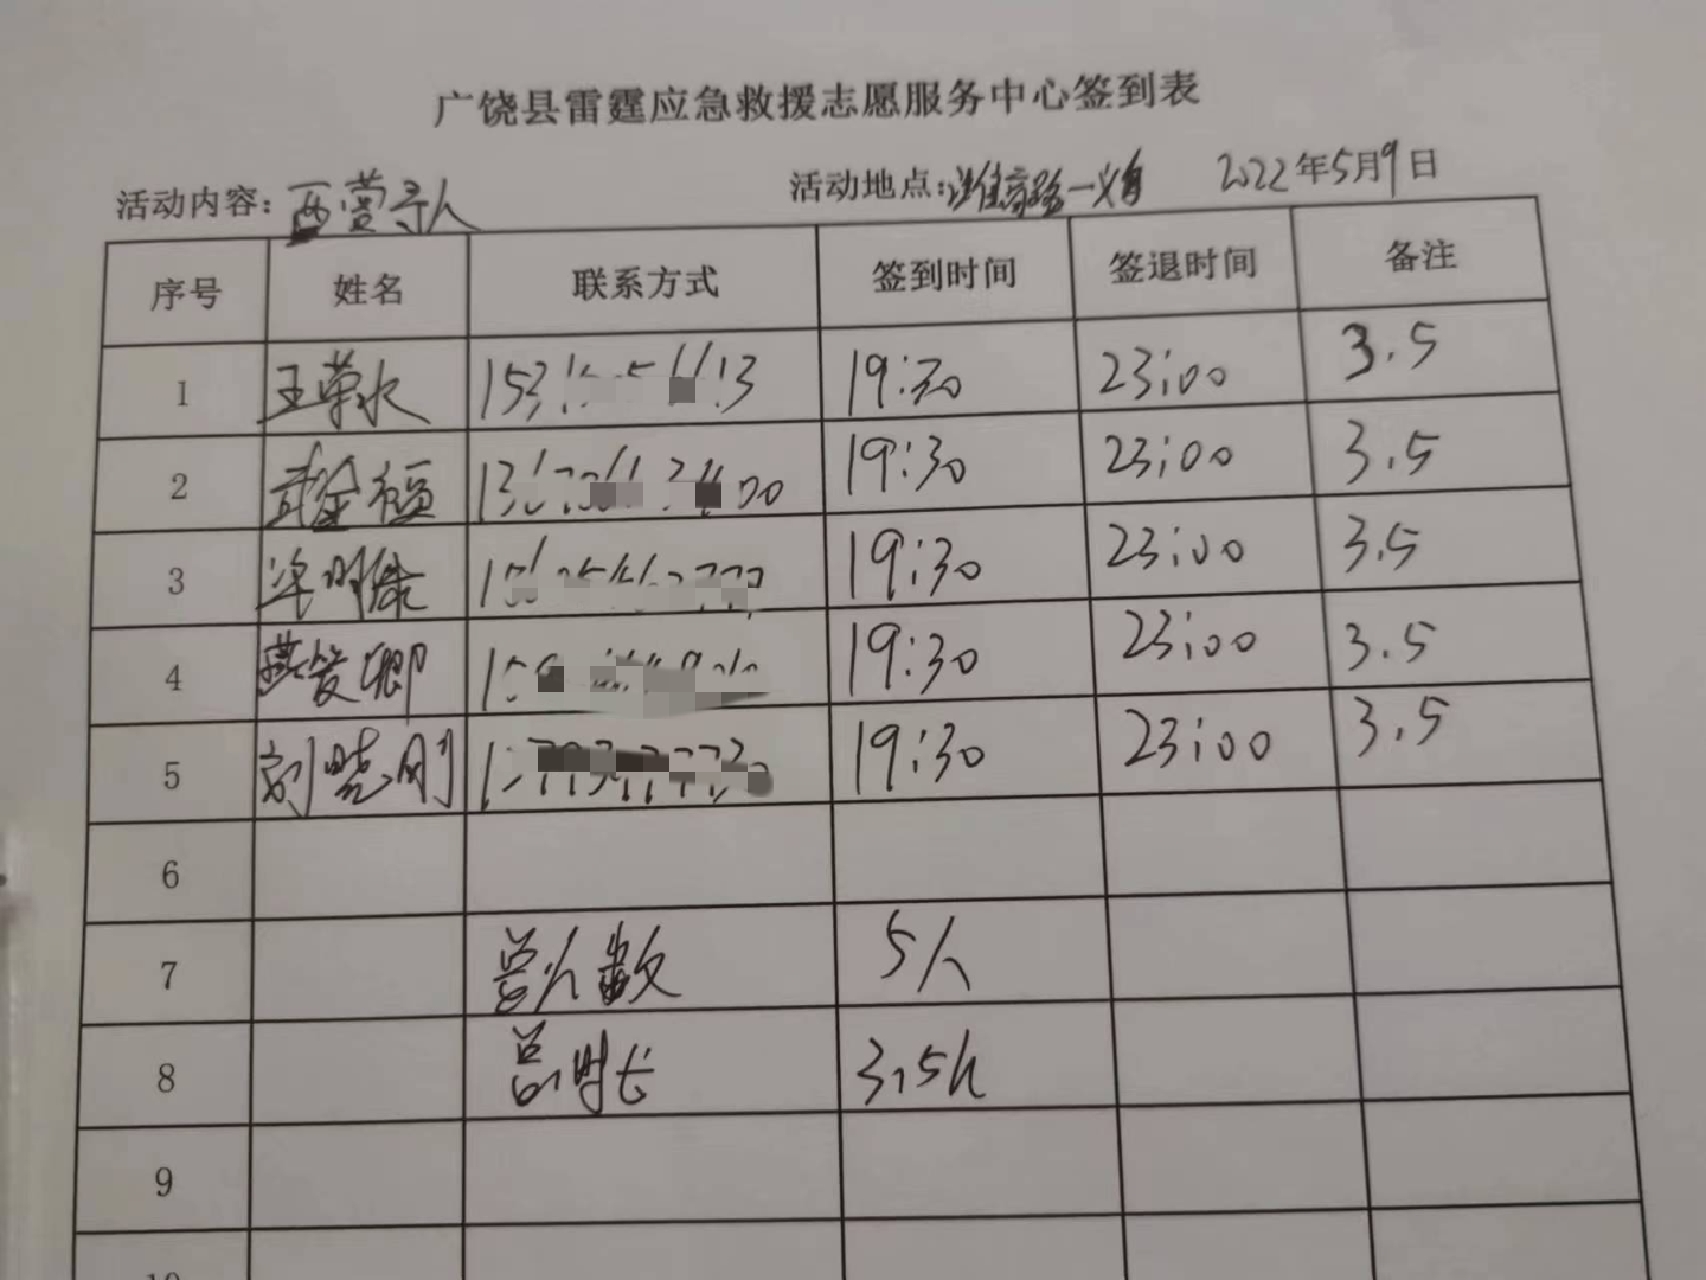 广饶县雷霆应急救援志愿服务中心签到表
活动内容：西营寻人 活动地点： 2022年5月9日
序号 姓名 联系方式 签到时间 签退时间 备注
1 王荣水 19:30 23:00 3.5
2 武金福 19:30 23:00 3.5
3 19:30 23:00 3.5
4 燕爱卿 19:30 23:00 3.5
5 刘晓刚 19:30 23:00 3.5
6
7 总人数 5人
8 总时长 3.5h
9
10